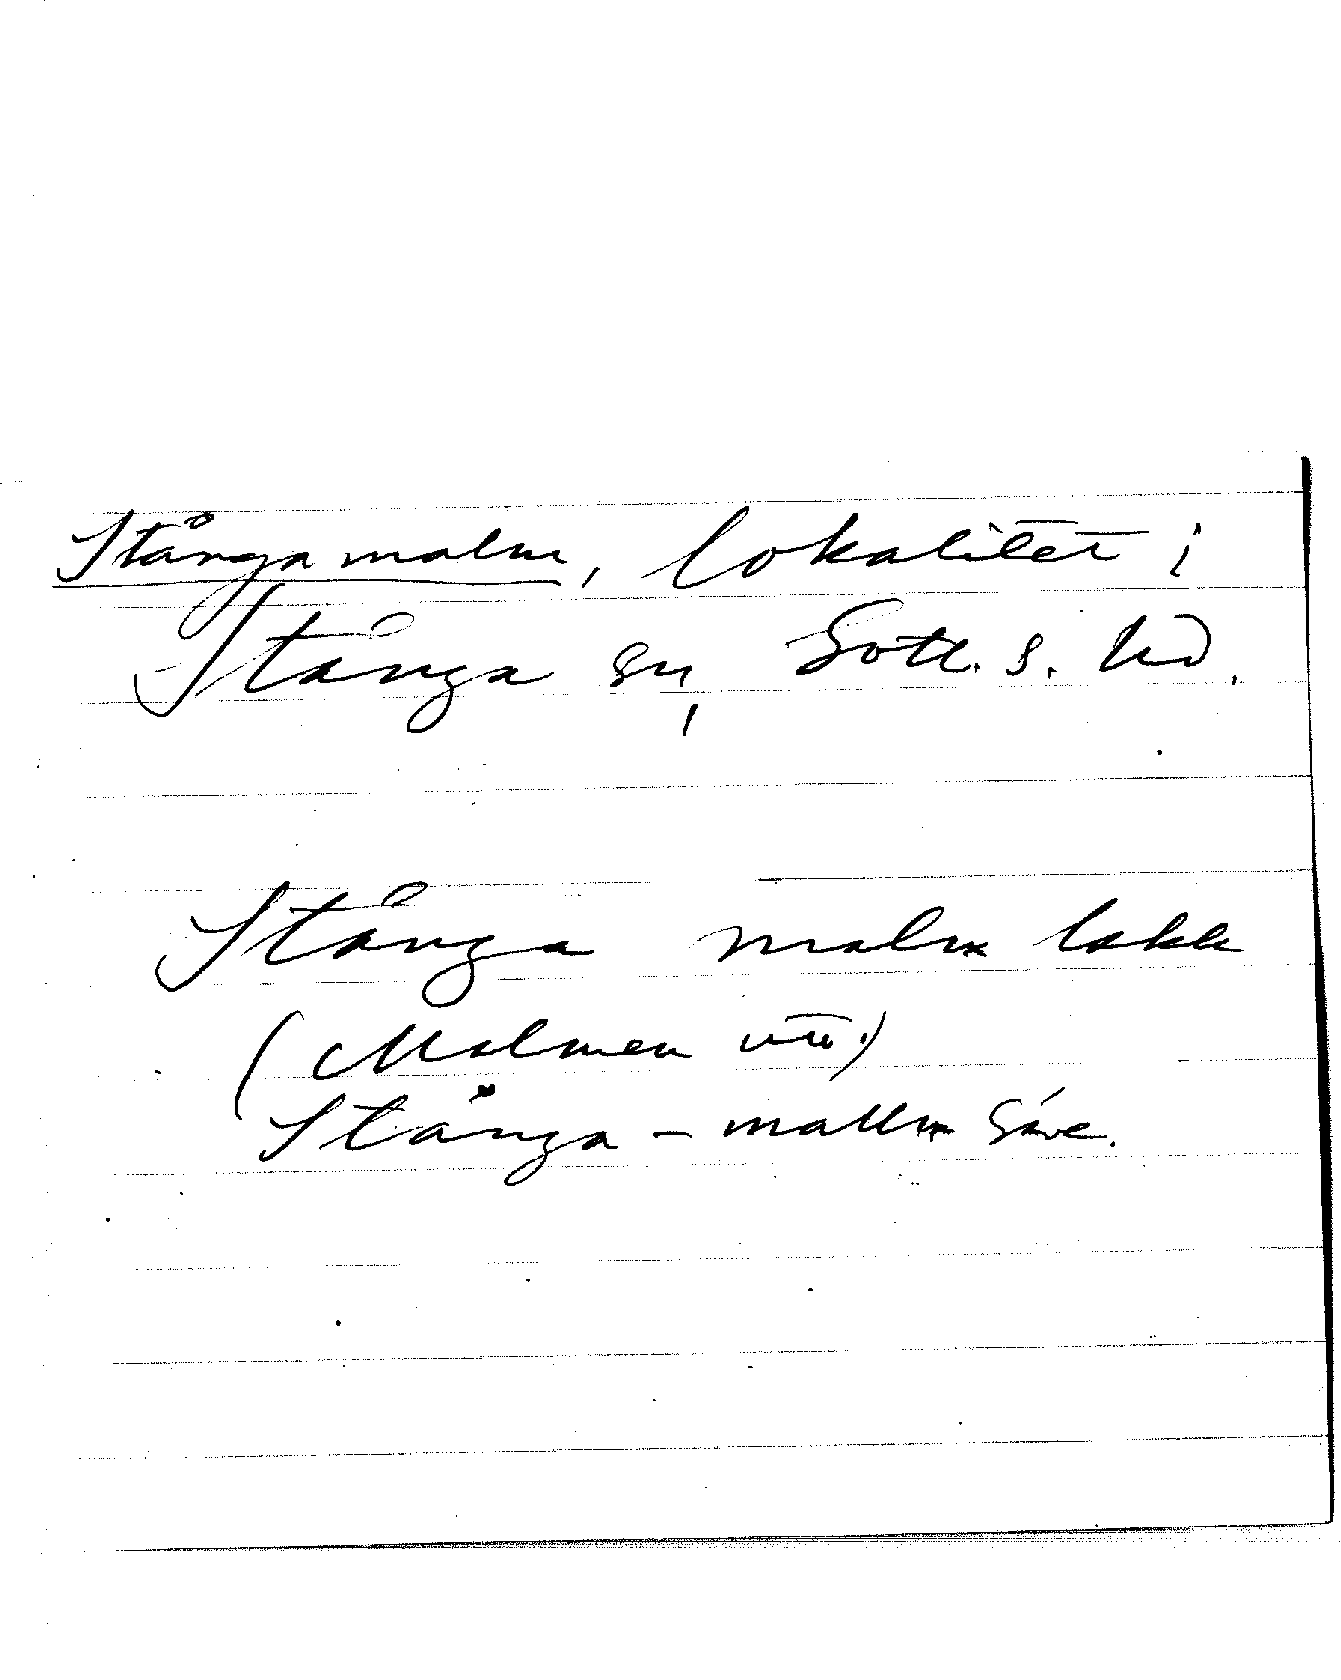 Stånga malm, lokalitet i
Stånga sn, Gotl. s. hd.
Stånga malm lokk
(Malmen utt.)
Stånga - mallm Säve.